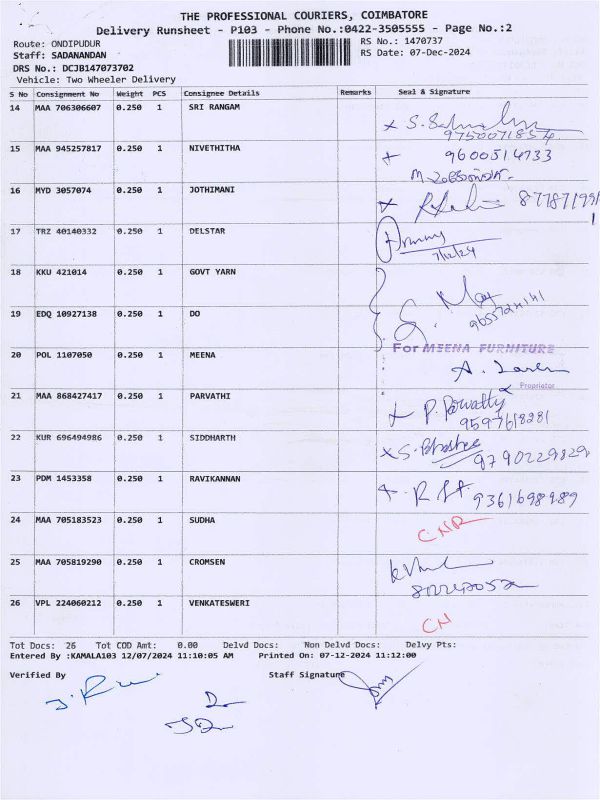 THE PROFESSIONAL COURIERS, COIMBATORE
Delivery Runsheet - P103 - Phone No.:0422-3505555 - Page No.:2
Route: ONDIPUDUR
RS No.: 1470737
Staff: SADANANDAN
RS Date: 07-Dec-2024
DRS No.: DCJB147073702
Vehicle: Two Wheeler Delivery
S No Consignment No Weight PCS Consignee Details Remarks Seal & Signature
14 MAA 706306607 0.250 1 SRI RANGAM
9750071854
15 MAA 945257817 0.250 1 NIVETHITHA
9600514733
16 MYD 3057074 0.250 1 JOTHIMANI
17 TRZ 40140332 0.250 1 DELSTAR
7/12/24
18 KKU 421014 0.250 1 GOVT YARN
19 EDQ 10927138 0.250 1 DO
20 POL 1107050 0.250 1 MEENA
For MEENA FURNITURE
Proprietor
21 MAA 868427417 0.250 1 PARVATHI
9597618281
22 KUR 696494986 0.250 1 SIDDHARTH
9790229829
23 PDM 1453358 0.250 1 RAVIKANNAN
9361698989
24 MAA 705183523 0.250 1 SUDHA
CNR
25 MAA 705819290 0.250 1 CROMSEN
26 VPL 224060212 0.250 1 VENKATESWERI
CN
Tot Docs: 26 Tot COD Amt: 0.00 Delvd Docs: Non Delvd Docs: Delvy Pts:
Entered By :KAMALA103 12/07/2024 11:10:05 AM Printed On: 07-12-2024 11:12:00
Verified By Staff Signature